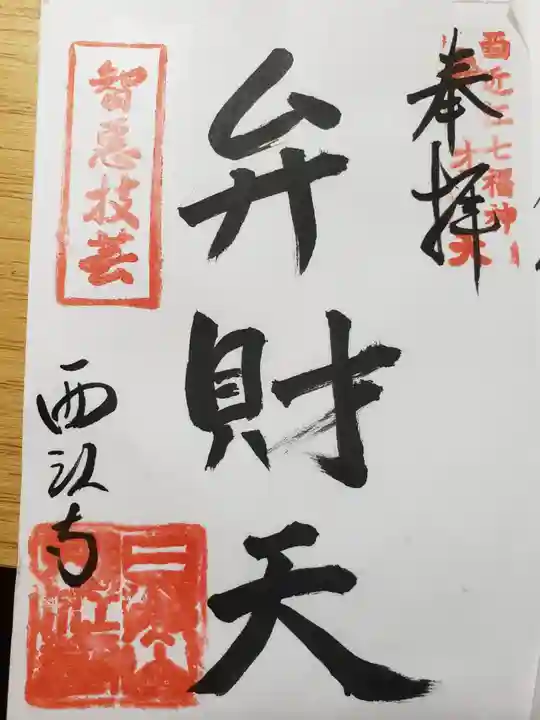 西近江七福神
奉拝
弁財天
智恵技芸
西江寺